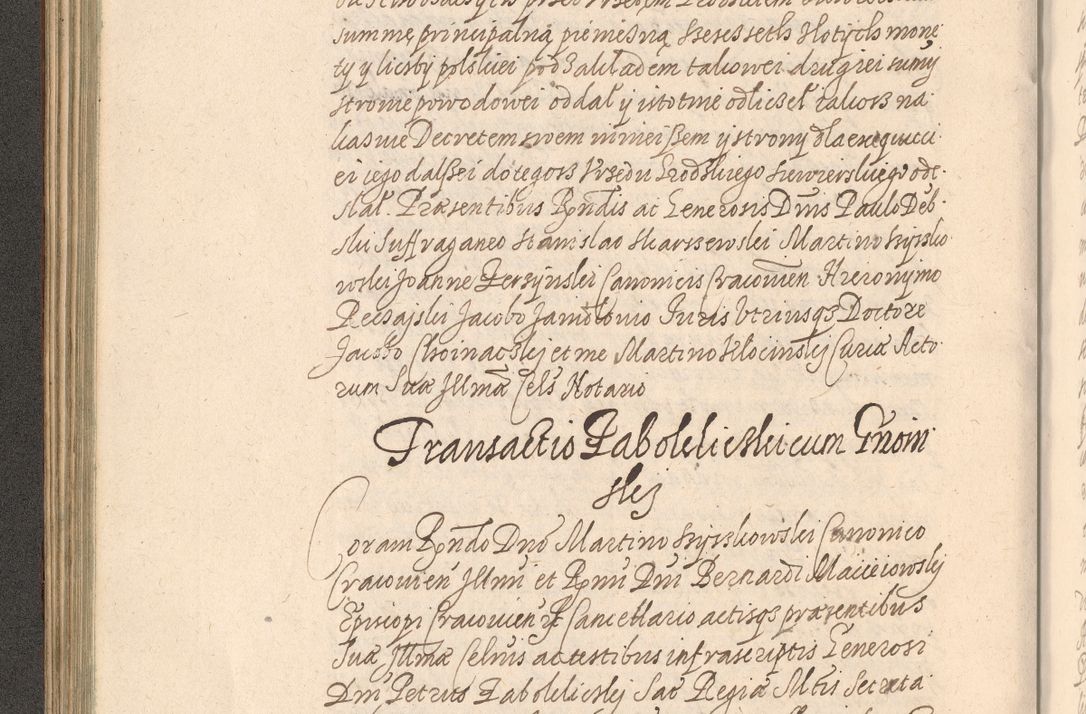 summę principalną pieniężną sześćseth złotych mone
ty y liczby polskiei pod zakładem takowei drugiei sumy
stronie powodowei oddał y istotnie odliczeł takosz na
kazuie Decretem swem ninieiszem y strony dla exequucci
ei iego dalszei do tegosz Urzędu Grodskiego Siewierskiego ode
słał. Præsentibus Rndis ac Generosis Dnis Paulo Dęb
ski Suffraganeo Stanislao Skarszewski Martino Szyszko
wski Joanne Zerzynski Canonicis Cracouien Hieronymo
Reczajski Jacobo Janidłowio Juris Vtriusqz Doctore
Jacobo Choinacskj et me Martino Kłocinskj Curiæ Acto
rum Suæ Jllmæ Cels Notario
Transactio Zabokliczki cum Gnoin
skiej
Coram Rndo Dno Martino Szyszkowski Canonico
Cracouien Jllmi et Rmi Dni Bernardi Macieiowskj
Episcopi Cracouien Cancellario actisqz præsentibus
Suæ Jllmæ Celnis ac testibus infrascriptis Generosi
Dni Petrus Zabokliczkj Sac Regiæ Mtis Secreta